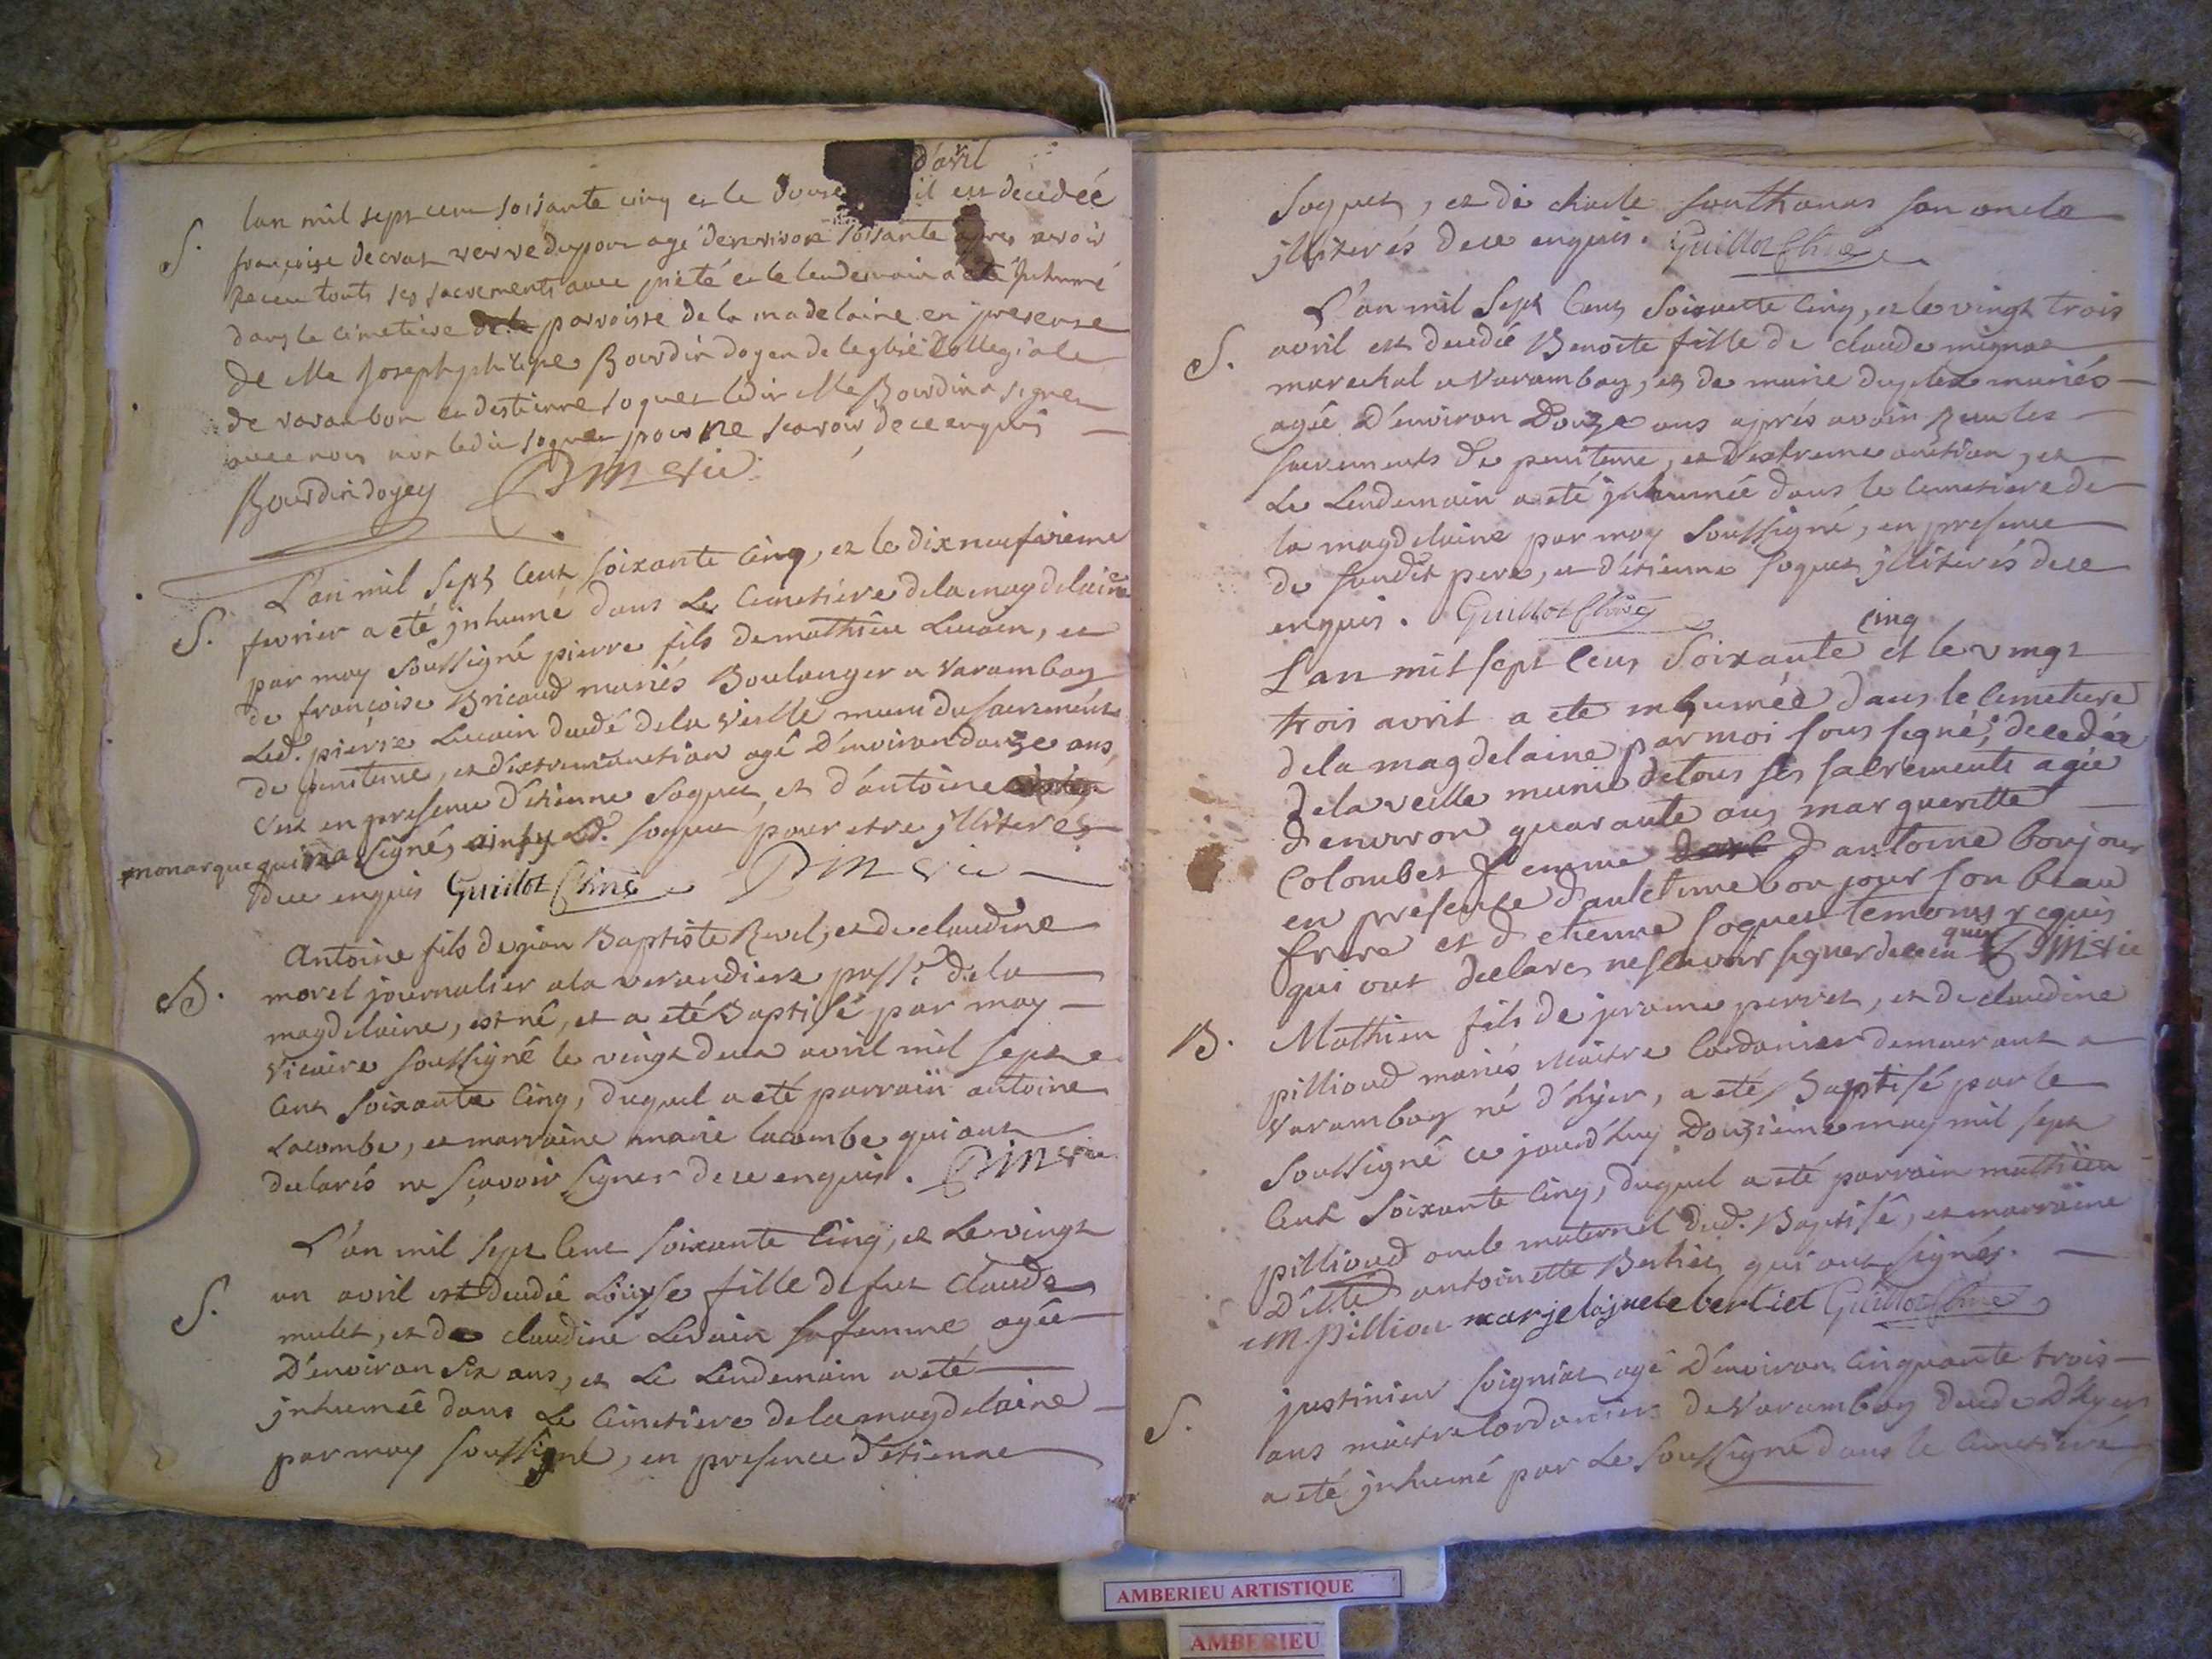 d'avril
S. lan mil sept cent soisante cinq et le douse il est decedéé
françoise decrat verve dupour agé denviron soisante apres avoir
Receu touts ses sacrements avec pieté et le lendemain a été Inhumé
dans le cimetiere de la parroisse de la madelaine en presense
de Me Joseph philipe Bourdin doyen de leglise Collegiale
de varambon et destienne soquet ledit Me Bourdin a signé
avec nous non ledit soquet pour ne scavoir de ce enquis
Bourdin doyen
S. L'an mil sept cent soixante cinq, et le dix neufvieme
fevrier a eté jnhumé dans Le Cimetiére de la magdelaine
par moy soussigné pierre fils de mathieu Lucain, et
de françoise Bricaud mariés Boulanger a Varambon
Led. pierre Lucain decedé de la Veille muni du sacrement
de penitence, et d'extremeonction agé d'environ douze ans,
C'est en presence d'etienne Soquet, et d'antoine
monarque qui n'a signé, ainsy Led. soquet pour etre jlliterés
de ce enquis Guillot
B. Antoine fils de jean Baptiste Revel, et de claudine
morel journalier a la verendiere passe. de la
magdelaine, est né, et a eté Baptisé par moy
Vicaire soussigné le vingt deux avril mil sept
cent soixante cinq, duquel a eté parrain antoine
Lacombe, et marraine marie lacombe qui ont
declarés ne sçavoir signer de ce enquis.
L'an mil sept cent soixante cinq, et Le vingt
S. un avril est decedée Loüise fille de feu claude
mulet, et de claudine Levrain sa femme agée
D'environ six ans, et Le Lendemain a eté
jnhumée dans Le Cimetiere de la magdelaine
par moy soussigné, en presence d'etienne
Soquet, et de charle southonas son oncle
jlliterés de ce enquis. Guillot
L'an mil Sept Cent Soixante Cinq, et le vingt trois
S. avril est decedée Benoite fille de claude mignat
marechal a Varambon, et de marie duplex mariés
agée D'environ Douze ans aprés avoir Receu les
sacrements de penitence, et d'extreme onction, et
Le Lendemain a eté jnhumée dans le Cimetiere de
la magdelaine par moy Soussigné, en presence
de sondit pere, et d'etienne soquet jlliterés de ce
enquis. Guillot
cinq
L an mil sept cent Soixante et le vingt
trois avril a ete inhumée dans le cimetiere
de la magdelaine par moi sous signé, decedée
de la veille munie de tous ses sacrements agée
d environ quarante ans marguerritte
Colombet femme d antoine bonjour
en presence d'anletme bonjour son beau
frere et d etienne soquet temoins requis
qui ont declares ne scavoir signer de ce en quis
B. Mathieu fils de jerome perret, et de claudine
pillioud mariés Maitre Cordonier demeurant a
Varambon né d'hÿer, a eté Baptisé par le
soussigné ce jourd'huy Douziéme may mil sept
cent soixante cinq, duquel a eté parrain mathieu
pillioud oncle maternel dud. Baptisé, et marraine
Dlle antoinette Bertiet qui ont signés.
M. pilliou marje tojnete bertiet Guillot
S. justinien soigniat agé d'environ Cinquante trois
ans maitre Cordonier de Varambon decedé D'hyer
a eté jnhumé par Le soussigné dans le Cimetiere
AMBERIEU ARTISTIQUE
AMBERIEU